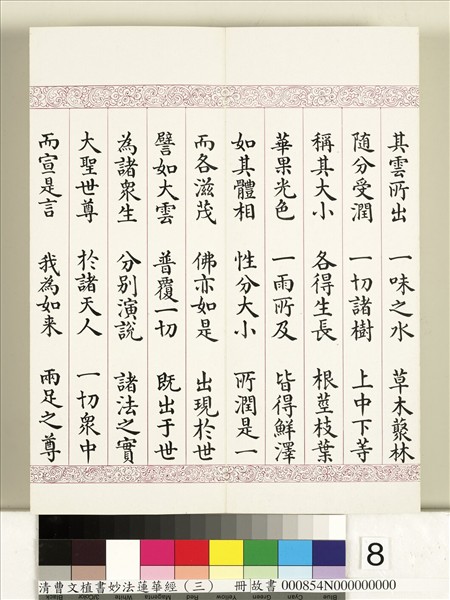 其雲所出 一味之水 草木藂林
隨分受潤 一切諸樹 上中下等
稱其大小 各得生長 根莖枝葉
華果光色 一雨所及 皆得鮮澤
如其體相 性分大小 所潤是一
而各滋茂 佛亦如是 出現於世
譬如大雲 普覆一切 既出于世
為諸眾生 分別演說 諸法之實
大聖世尊 於諸天人 一切眾中
而宣是言 我為如来 兩足之尊
8
清曹文植書妙法蓮華經（三） 冊 故書 000854N000000000